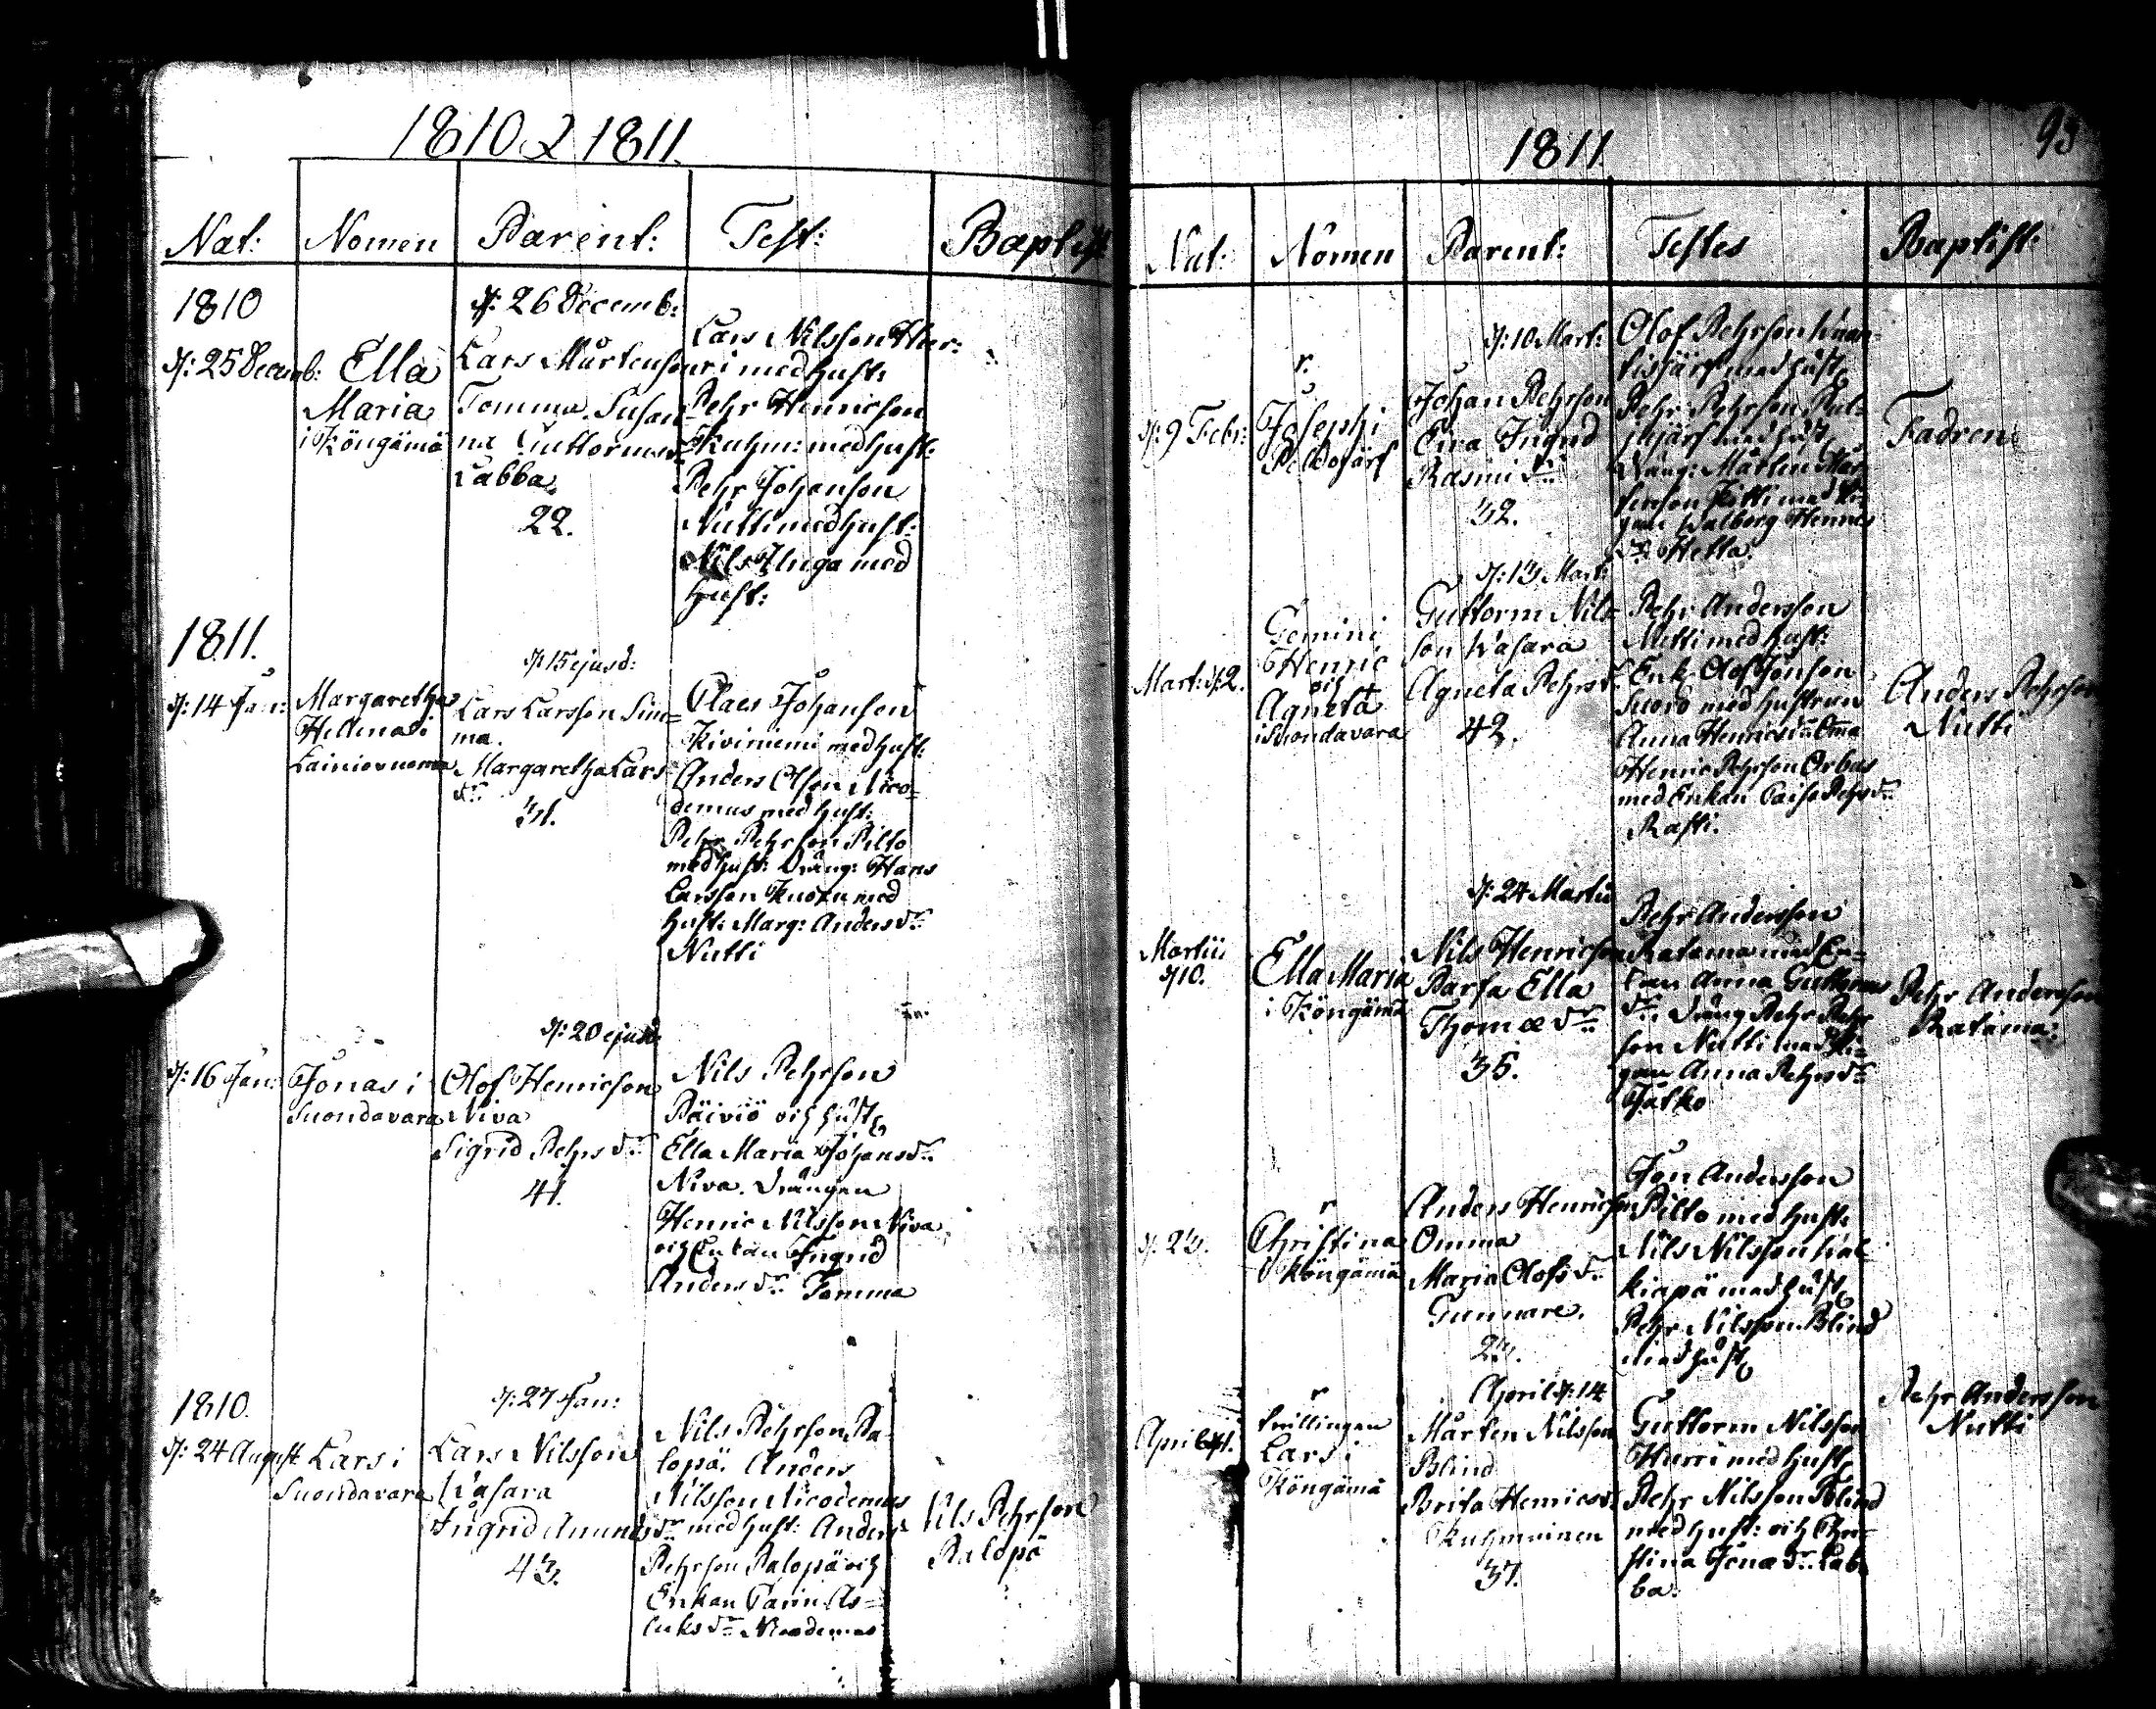 1810 & 1811.
Nat: Nomen Parent: Test: Baptist
1810
d: 25 Decemb:
Ella
Maria
i Köngämä
d: 26 Decemb:
Lars Mårtenson
Tomma. Susan
na Guttorms dr
Labba
22.
Lars Nilsson Hur:
ri med hust:
Pehr Henricson
Kuhm: med hust:
Pehr Johanson
Nutti med hust:
Nils Unga med
hust:
1811.
d: 14 Jan:
Margaretha
Hellena i
Lainiovuoma
d: 15 ejusd:
Lars Larsson Sim=
ma.
Margaretha Lars
dr
31.
Claes Johanson
Kiviniemi med hust:
Anders Olson Nico=
demus med hust:
Pehr Pehrson Pilto
med hust: Dräng: Hans
Larsson Kuoku med
hust: Marg: Anders dr
Nutti
d: 16 Jan:
Jonas i
Suondavara
d: 20 ejusd:
Olof Henricson
Niva
Sigrid Pehrs dr
41.
Nils Pehrson
Päiviö och hust
Ella Maria Johans dr
Niva. Drängen
Henric Nilsson Niva
och Enkan Ingrid
Anders dr Tomma
1810.
d: 24 August
Lars i
Suondavara
d: 27 Jan:
Lars Nilsson
Wasara
Ingrid Amunds dr
43.
Nils Pehrson Pa
lopä. Anders
Nilsson Nicodemus
med hust: Anders
Pehrson Palopä och
Enkan Carin As=
laks dr Nicodemus
Nils Pehrson
Palopä
1811.
93
Nat: Nomen Parent: Testes Baptist:
d: 9 Febr:
r.
Josephi
Peldojärf
d: 10 Mart:
Johan Pehrson
Eva Ingrid
Rasmi dr
32.
Olof Pehrson
med hust
Pehr Pehrson
med hust
Dräng: Mårten Mår
tenson med Pi
gan Walborg Hennes
dr Hetta.
Fadren
Mart: d: 2.
Gemini
Henric
och
Agneta
i Suondavara
d: 13 Mart:
Guttorm Nils=
son Wasara
Agneta Pehrs dr
42.
Pehr Andersson
Nutti med hust:
Enk: Olof Jonson
Suoro med hustrun
Anna Henrics dr Oma
Henric Pehrson Orbus
med Enkan Caisa Pehrs dr
Rasti.
Anders Pehrson
Nutti
Martii
d 10.
Ella Maria
i Köngämä
d: 24 Martii
Nils Henricson
Parfa Ella
Thomæ dr
35.
Pehr Andersson
Ratama med En=
kan Anna Guttorms
dr. Dräng Pehr Pehr
son Nutti med Pi=
gan Anna Pehrs dr
Jatko
Pehr Andersson
Ratama:
d: 23.
r
Christina
i Köngämä
Anders Henricson
Omma
Maria Olofs dr
Gunnare.
23.
Jon Andersson
Pilto med hust:
Nils Nilsson Wal
kiapä med hust
Pehr Nilsson Blind
med hust
April d 1.
r
tvillingen
Lars i
Köngämä
April d: 14
Mårten Nilsson
Blind
Brita Henrics dr
Kuhmuinen
37.
Guttorm Nilsson
Hurri med hust
Pehr Nilsson Blind
med hust: och Chri=
stina Jonæ dr Lab=
ba.
Pehr Andersson
Nutti